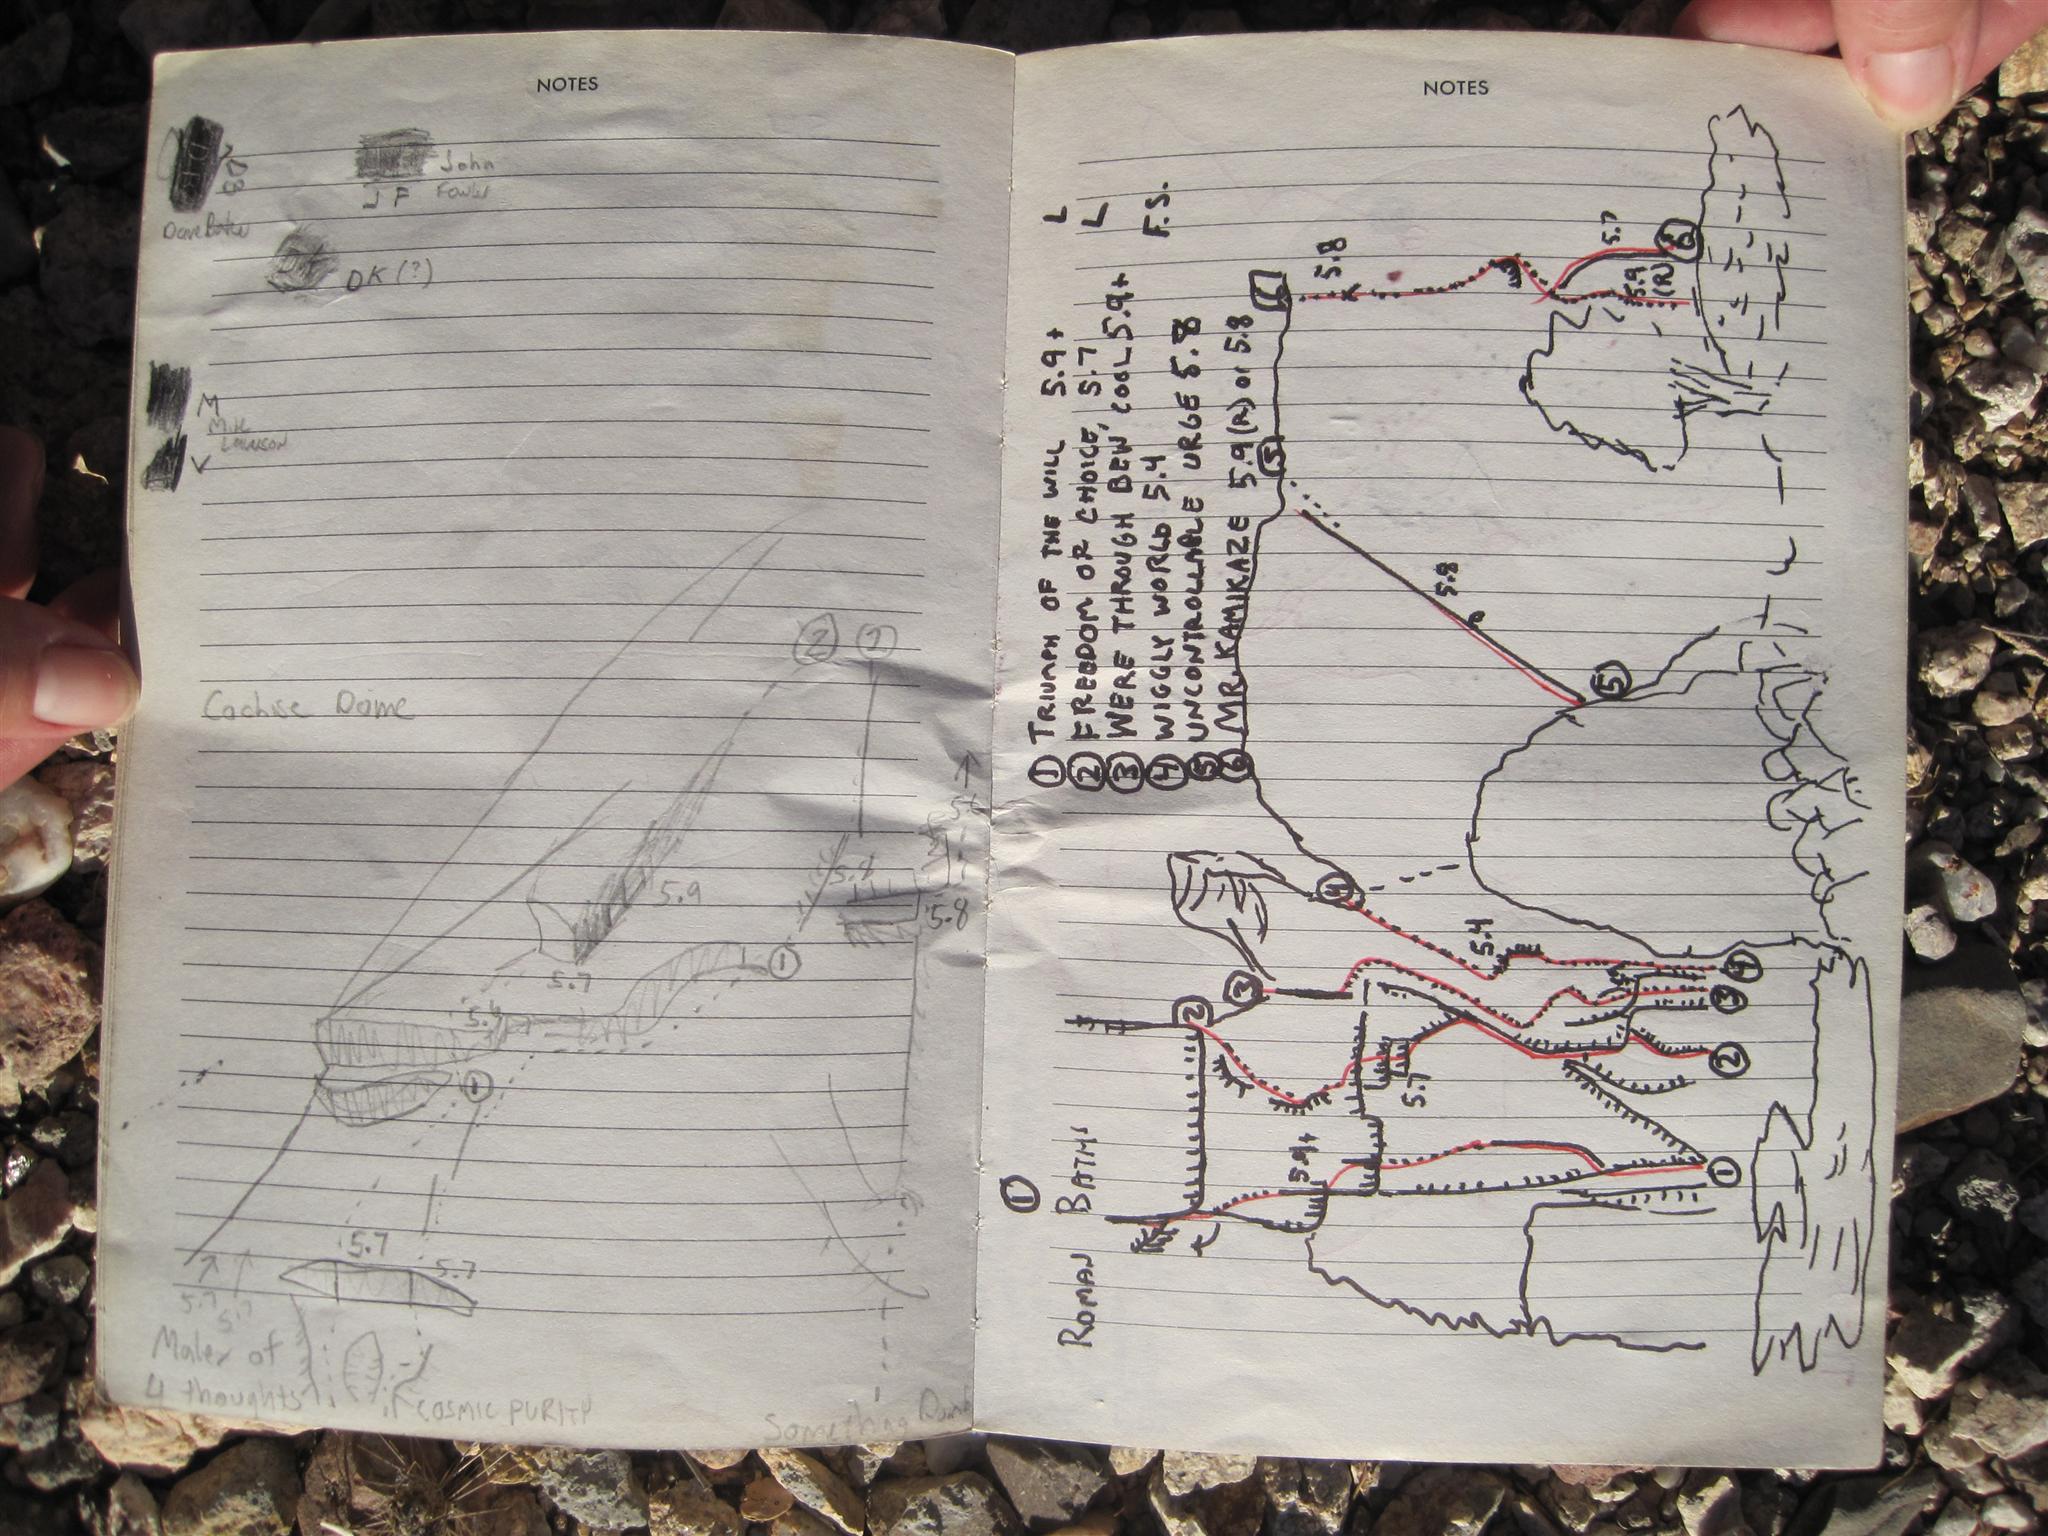 NOTES
John
J F Fowler
DB
DK (?)
M
V
Cochise Dome
2
1
5.9
5.8
5.8
5.7
1
1
5.7
5.7
5.7
5.7
4 thoughts
COSMIC PURITY
Something Dumb
NOTES
① ROMAN BATHS
① TRIUMPH OF THE WILL 5.9+ L
② FREEDOM OF CHOICE, 5.7 L
③ WERE THROUGH BEIN' COOL 5.9+
④ WIGGLY WORLD 5.4 F.S.
⑤ UNCONTROLLABLE URGE 5.8
⑥ MR. KAMIKAZE 5.9 (R) or 5.8
6
5.8
5.7
5.9
(R)
6
5
5.8
5
4
5.4
4
3
3
2
2
5.7
5.9+
1